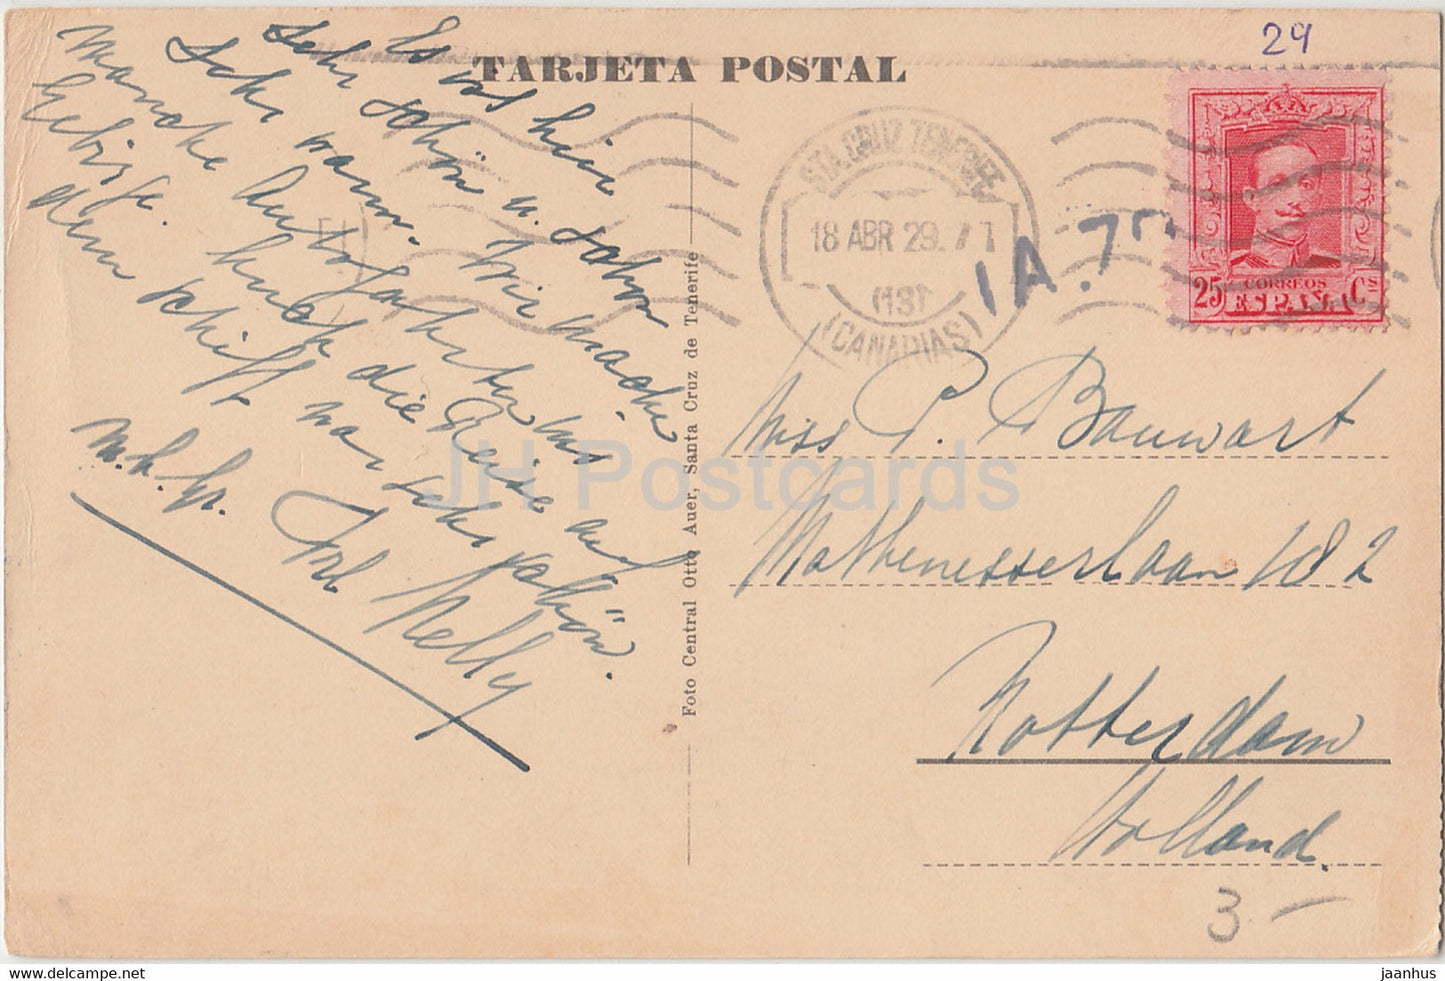 29
TARJETA POSTAL
STA. CRUZ TENERIFE
18 ABR 29. 7 T
(CANARIAS)
1A.7
25 CORREOS Cs
ESPAÑA
Es ist hier
sehr schön u. schon
sehr warm. Wir machen
manche Autofahrten ins
Gebirge. Auch die Reise auf
dem Schiff war sehr schön.
m. h. Gr. Ihre Nelly
Foto Central Otto Auer, Santa Cruz de Tenerife
Miss P. Bauwart
Mathenesserlaan 182
Rotterdam
Holland.
3 —
JH Postcards
jaanhus